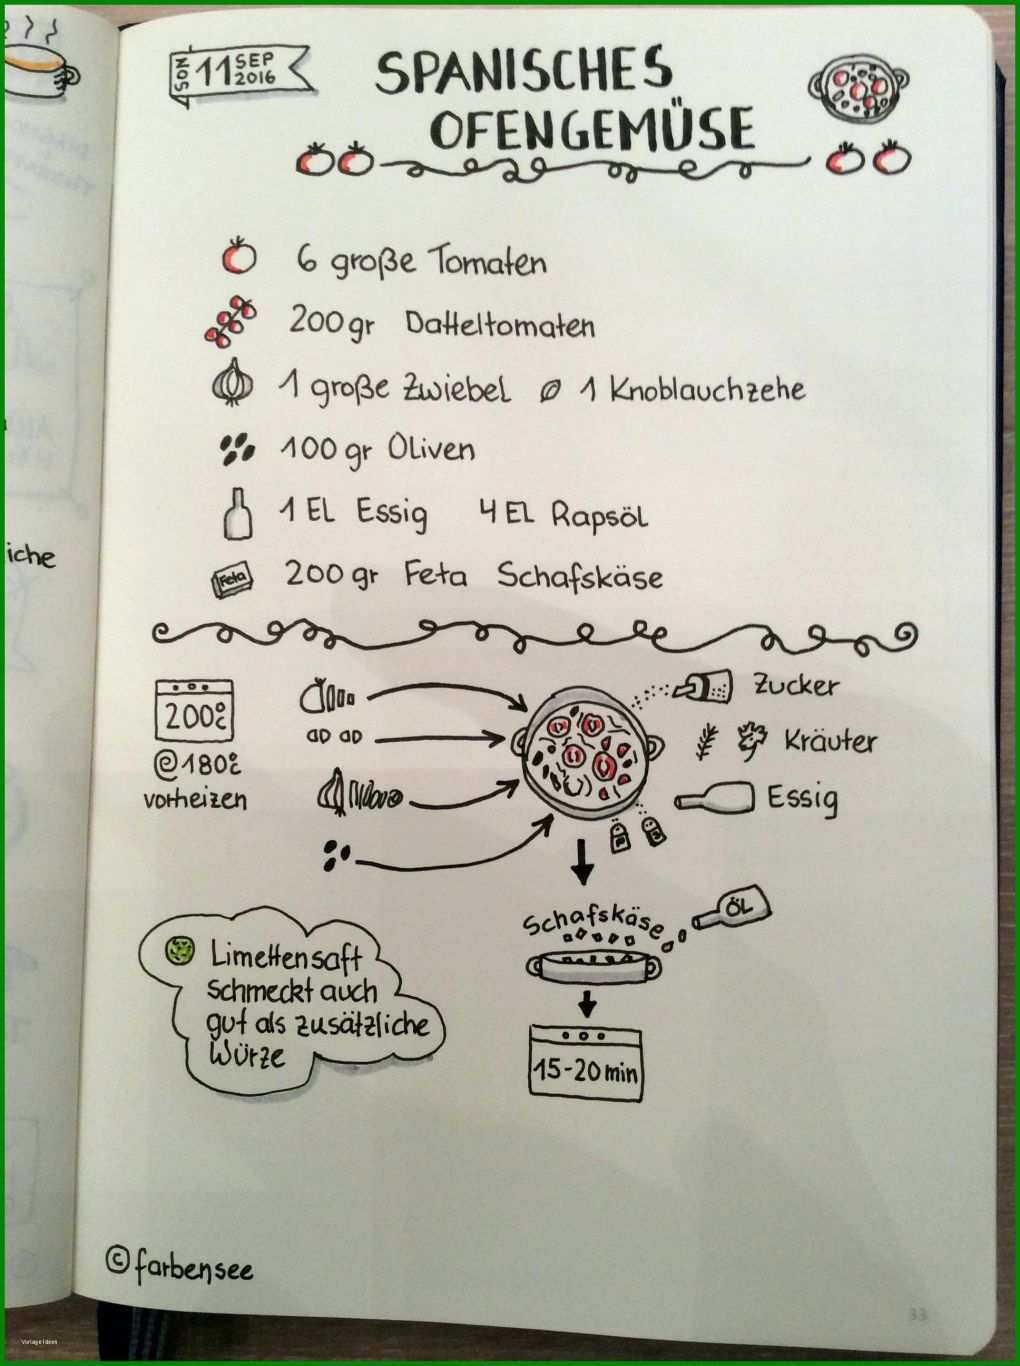 SON 11 SEP 2016
SPANISCHES
OFENGEMÜSE
6 große Tomaten
200gr Datteltomaten
1 große Zwiebel 1 Knoblauchzehe
100gr Oliven
1 EL Essig 4 EL Rapsöl
Feta 200gr Feta Schafskäse
200°C
@180°C
vorheizen
Zucker
Kräuter
Essig
Schafskäse
ÖL
15-20min
Limettensaft
schmeckt auch
gut als zusätzliche
Würze
iche
© farbensee
33
Vorlage Ideen